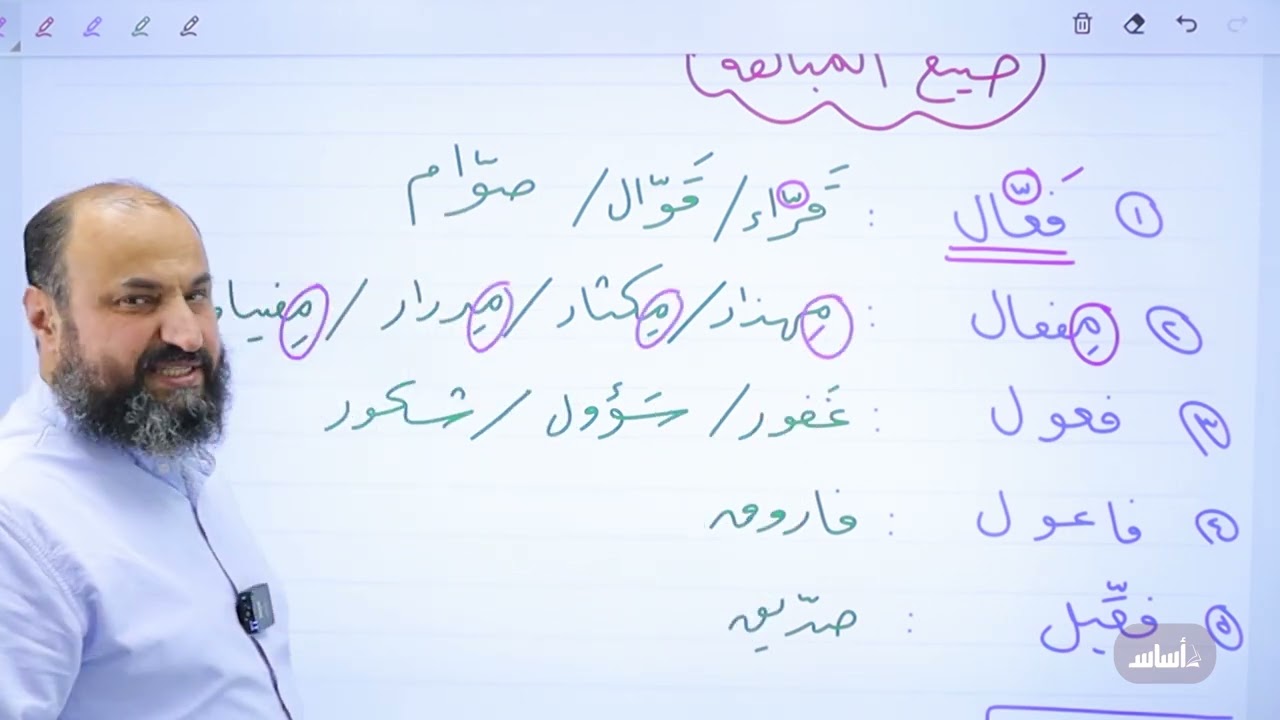 صيغ المبالغة
١ فَعّال : قَرّاء / قَوّال / صوّام
٢ مِفعال : مِهذار / مِكثار / مِدرار / مِفيا
٣ فعول : غَفور / سَؤول / شكور
٤ فاعول : فاروق
٥ فِعّيل : صدّيق
أساس